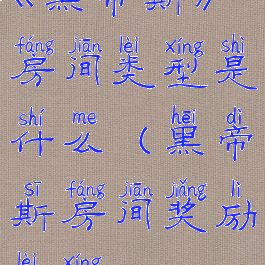 《黑帝斯》
fáng jiān lèi xíng shì
房间类型是
shí me hēi dì
什么（黑帝
sī fáng jiān jiǎng lì
斯房间奖励
lèi xíng